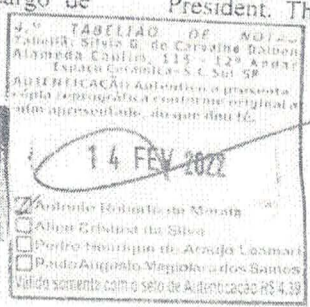 argo de President. Th
4.º TABELIÃO DE NOTAS
Tabeliã: Silvia G. de Carvalho Dalben
Alameda Caulim, 115 - 12º Andar
Espaço Cerâmica - S. C. Sul SP
AUTENTICAÇÃO Autentico a presente
cópia reprográfica conforme original a
mim apresentado, do que dou fé.
14 FEV 2022
Antonio Roberto de Morais
Aline Cristina da Silva
Pedro Henrique de Araujo
Paulo Augusto dos Santos
Válido somente com o selo de Autenticação R$ 4,39